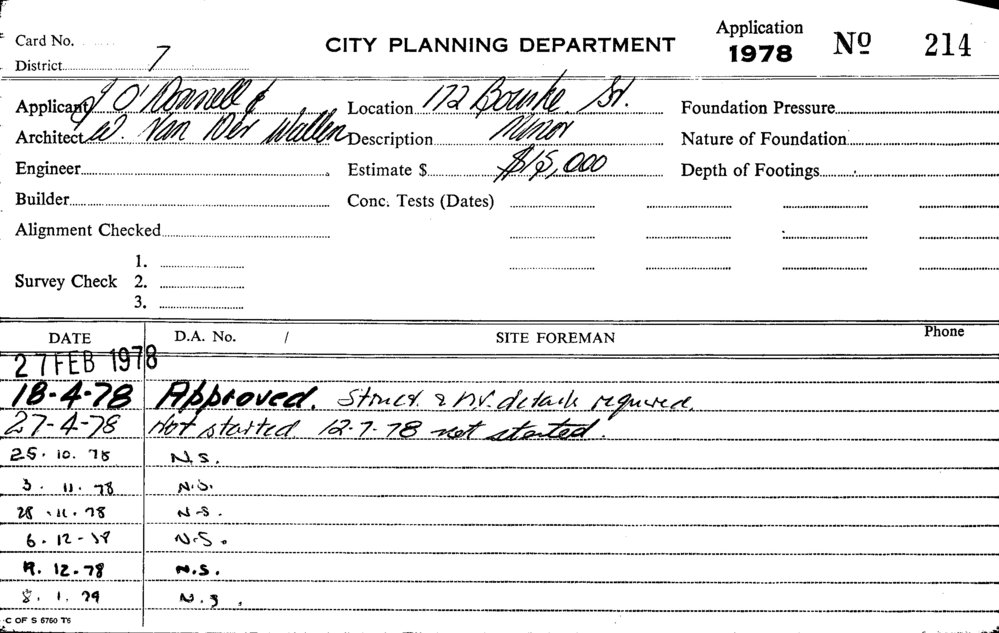 Card No.
CITY PLANNING DEPARTMENT
Application 1978 Nº 214
District 7
Applicant J O'Donnell & Location 172 Bourke St. Foundation Pressure
Architect W. Van Der Wallen Description Minor Nature of Foundation
Engineer Estimate $ $15,000 Depth of Footings
Builder Conc. Tests (Dates)
Alignment Checked
1.
Survey Check 2.
3.
DATE D.A. No. / SITE FOREMAN Phone
27 FEB 1978
18-4-78 Approved. Struct. & details required.
27-4-78 Not started. 12-7-78 not started.
25. 10. 78 N.S.
3. 11. 78 N.S.
28. 11. 78 N.S.
6. 12 - 78 N.S.
12. 78 N.S.
8. 1. 79 N.S.
C OF S 6760 T6